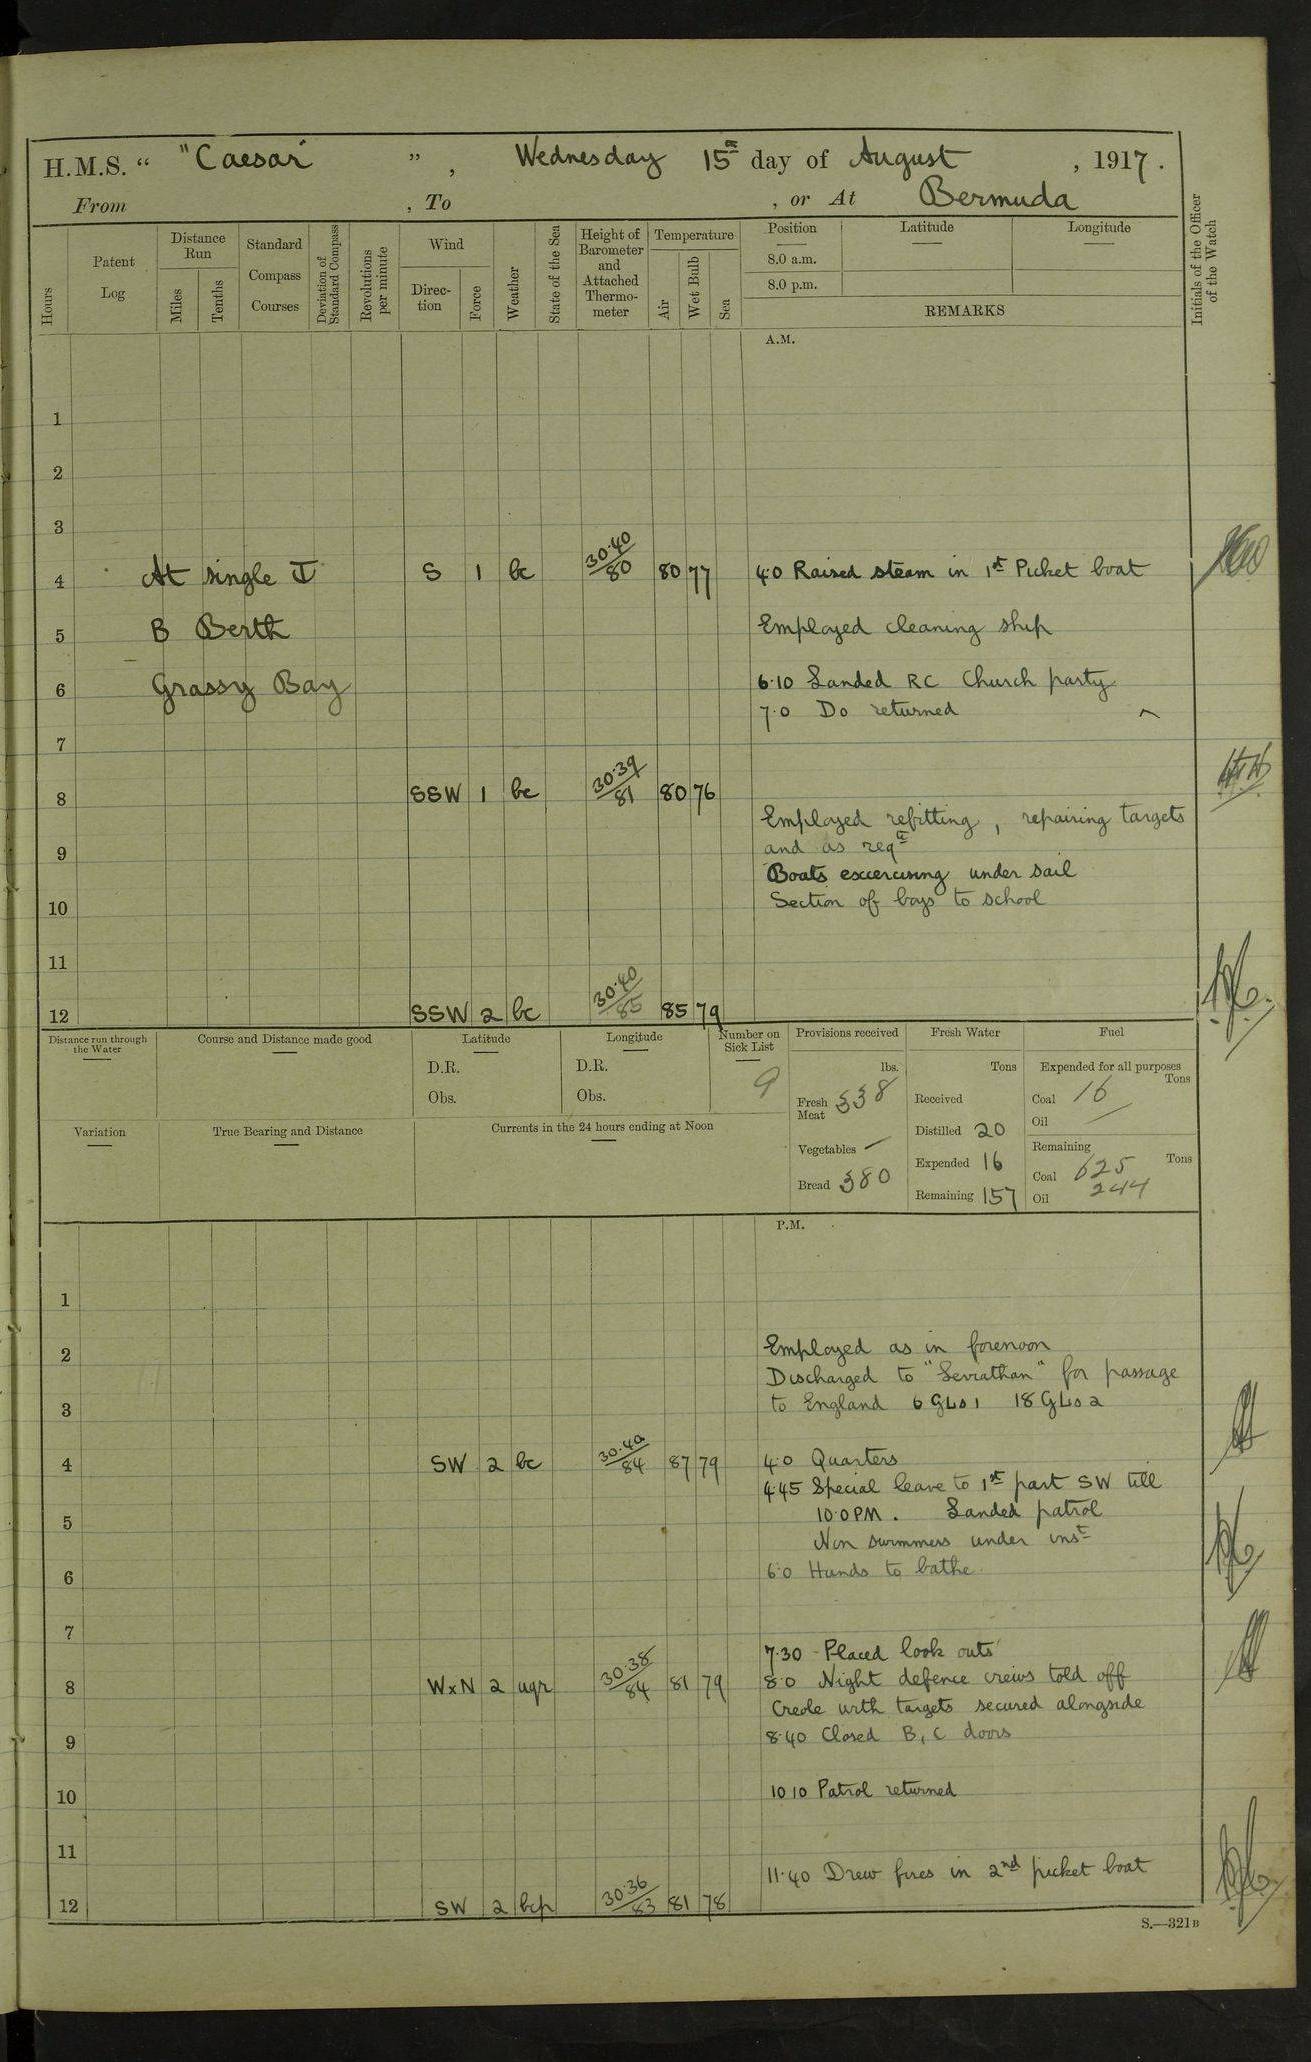 H.M.S. " "Caesar ", Wednesday 15th day of August , 1917.
From , To , or At Bermuda
Hours
Patent Log
Distance Run
Miles
Tenths
Standard Compass Courses
Deviation of Standard Compass
Revolutions per minute
Wind
Direc-tion
Force
Weather
State of the Sea
Height of Barometer and Attached Thermo-meter
Temperature
Air
Wet Bulb
Sea
Position Latitude Longitude
8.0 a.m.
8.0 p.m.
REMARKS
Initials of the Officer of the Watch
A.M.
1
2
3
4 At single ⚓ S 1 bc 30.40/80 80 77 4.0 Raised steam in 1st Picket boat
5 B Berth Employed cleaning ship
6 Grassy Bay 6.10 Landed RC Church party
7.0 Do returned
7
8 SSW 1 bc 30.39/81 80 76
Employed refitting, repairing targets
9 and as reqd
Boats excercising under sail
10 Section of boys to school
11
12 SSW 2 bc 30.40/85 85 79
Distance run through the Water
Course and Distance made good
Latitude
D.R.
Obs.
Longitude
D.R.
Obs.
Number on Sick List
9
Variation
True Bearing and Distance
Currents in the 24 hours ending at Noon
Provisions received
lbs.
Fresh Meat 338
Vegetables –
Bread 380
Fresh Water
Tons
Received
Distilled 20
Expended 16
Remaining 157
Fuel
Expended for all purposes
Tons
Coal 16
Oil –
Remaining
Tons
Coal 625
Oil 244
P.M.
1
2 Employed as in forenoon
Discharged to "Leviathan" for passage
3 to England 6 GLs 1 18 GLs 2
4 SW 2 bc 84 87 79 4.0 Quarters
4.45 Special leave to 1st part SW till
5 10.0 PM. Landed patrol
Non swimmers under inst
6 6.0 Hands to bathe
7
7.30 Placed look outs
8 WxN 2 uqr 30.38/84 81 79 8.0 Night defence crews told off
Creole with targets secured alongside
9 8.40 Closed B, C doors
10 10 10 Patrol returned
11
11.40 Drew fires in 2nd picket boat
12 SW 2 bcp 30.36/83 81 78
S.—321B